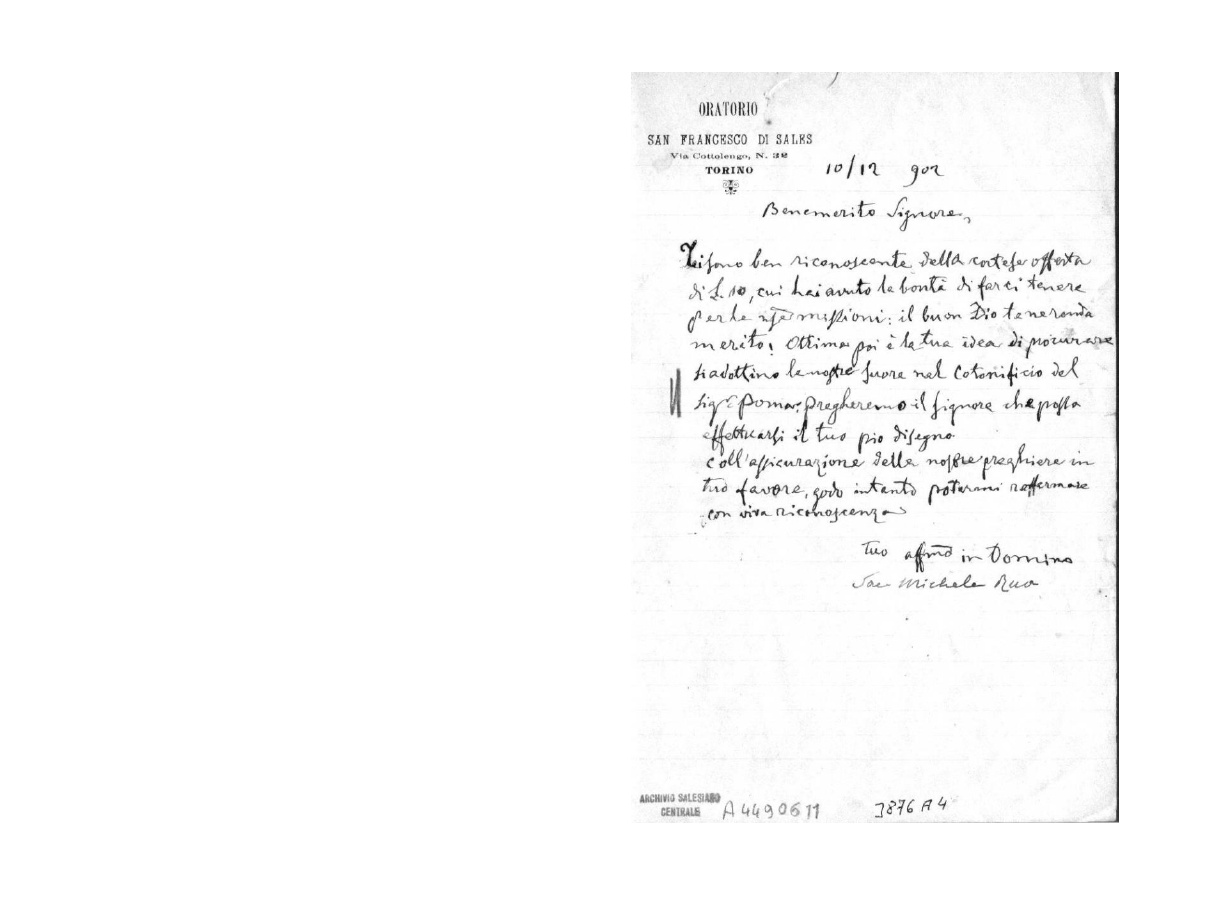 ORATORIO
SAN FRANCESCO DI SALES
Via Cottolengo, N. 32
TORINO
10/12 902
Benemerito Signore,
Ti sono ben riconoscente della cortese offerta
di L. 10, cui hai avuto la bontà di farci tenere
per le nre missioni: il buon Dio te ne renda
merito! Ottima poi è la tua idea di procurare
si adottino le nostre suore nel Cotonificio del
Sigr Poma: pregheremo il Signore che possa
effettuarsi il tuo pio disegno.
Coll'assicurazione delle nostre preghiere in
tuo favore, godo intanto potermi raffermare
con viva riconoscenza
tuo affmo in Domino
Sac Michele Rua
ARCHIVIO SALESIANO
CENTRALE
A4490611
3876 A 4